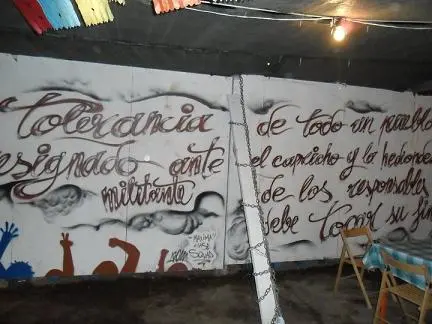 tolerancia de todo un pueblo
esignado ante el capricho y la hedionde
militante de los responsables
debe tocar su fin
SQUAD